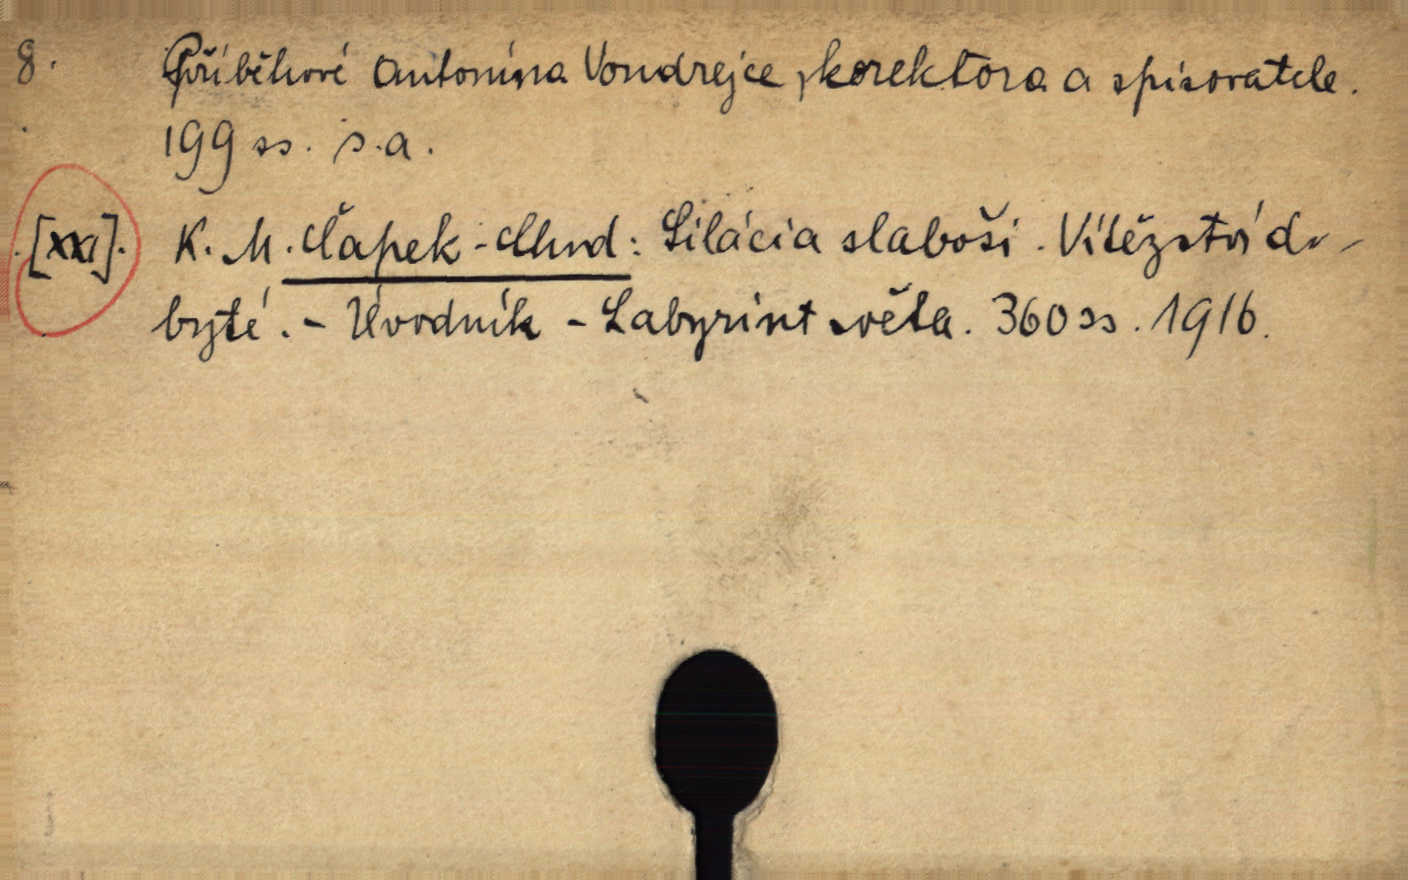 8. Příběhové Antonína Vondrejce, korektora a spisovatele.
199 ss. s.a.
[XXI]. K. M. Čapek-Chod: Siláci a slaboši. Vítězství do-
byté. - Úvodník - Labyrint světa. 360 ss. 1916.